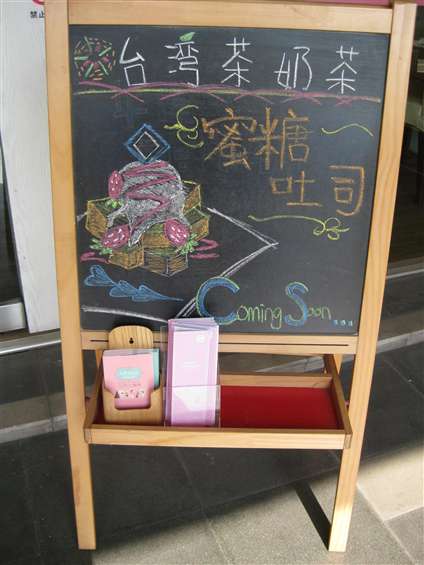 禁止
台湾茶奶茶
蜜糖
吐司
Coming Soon....